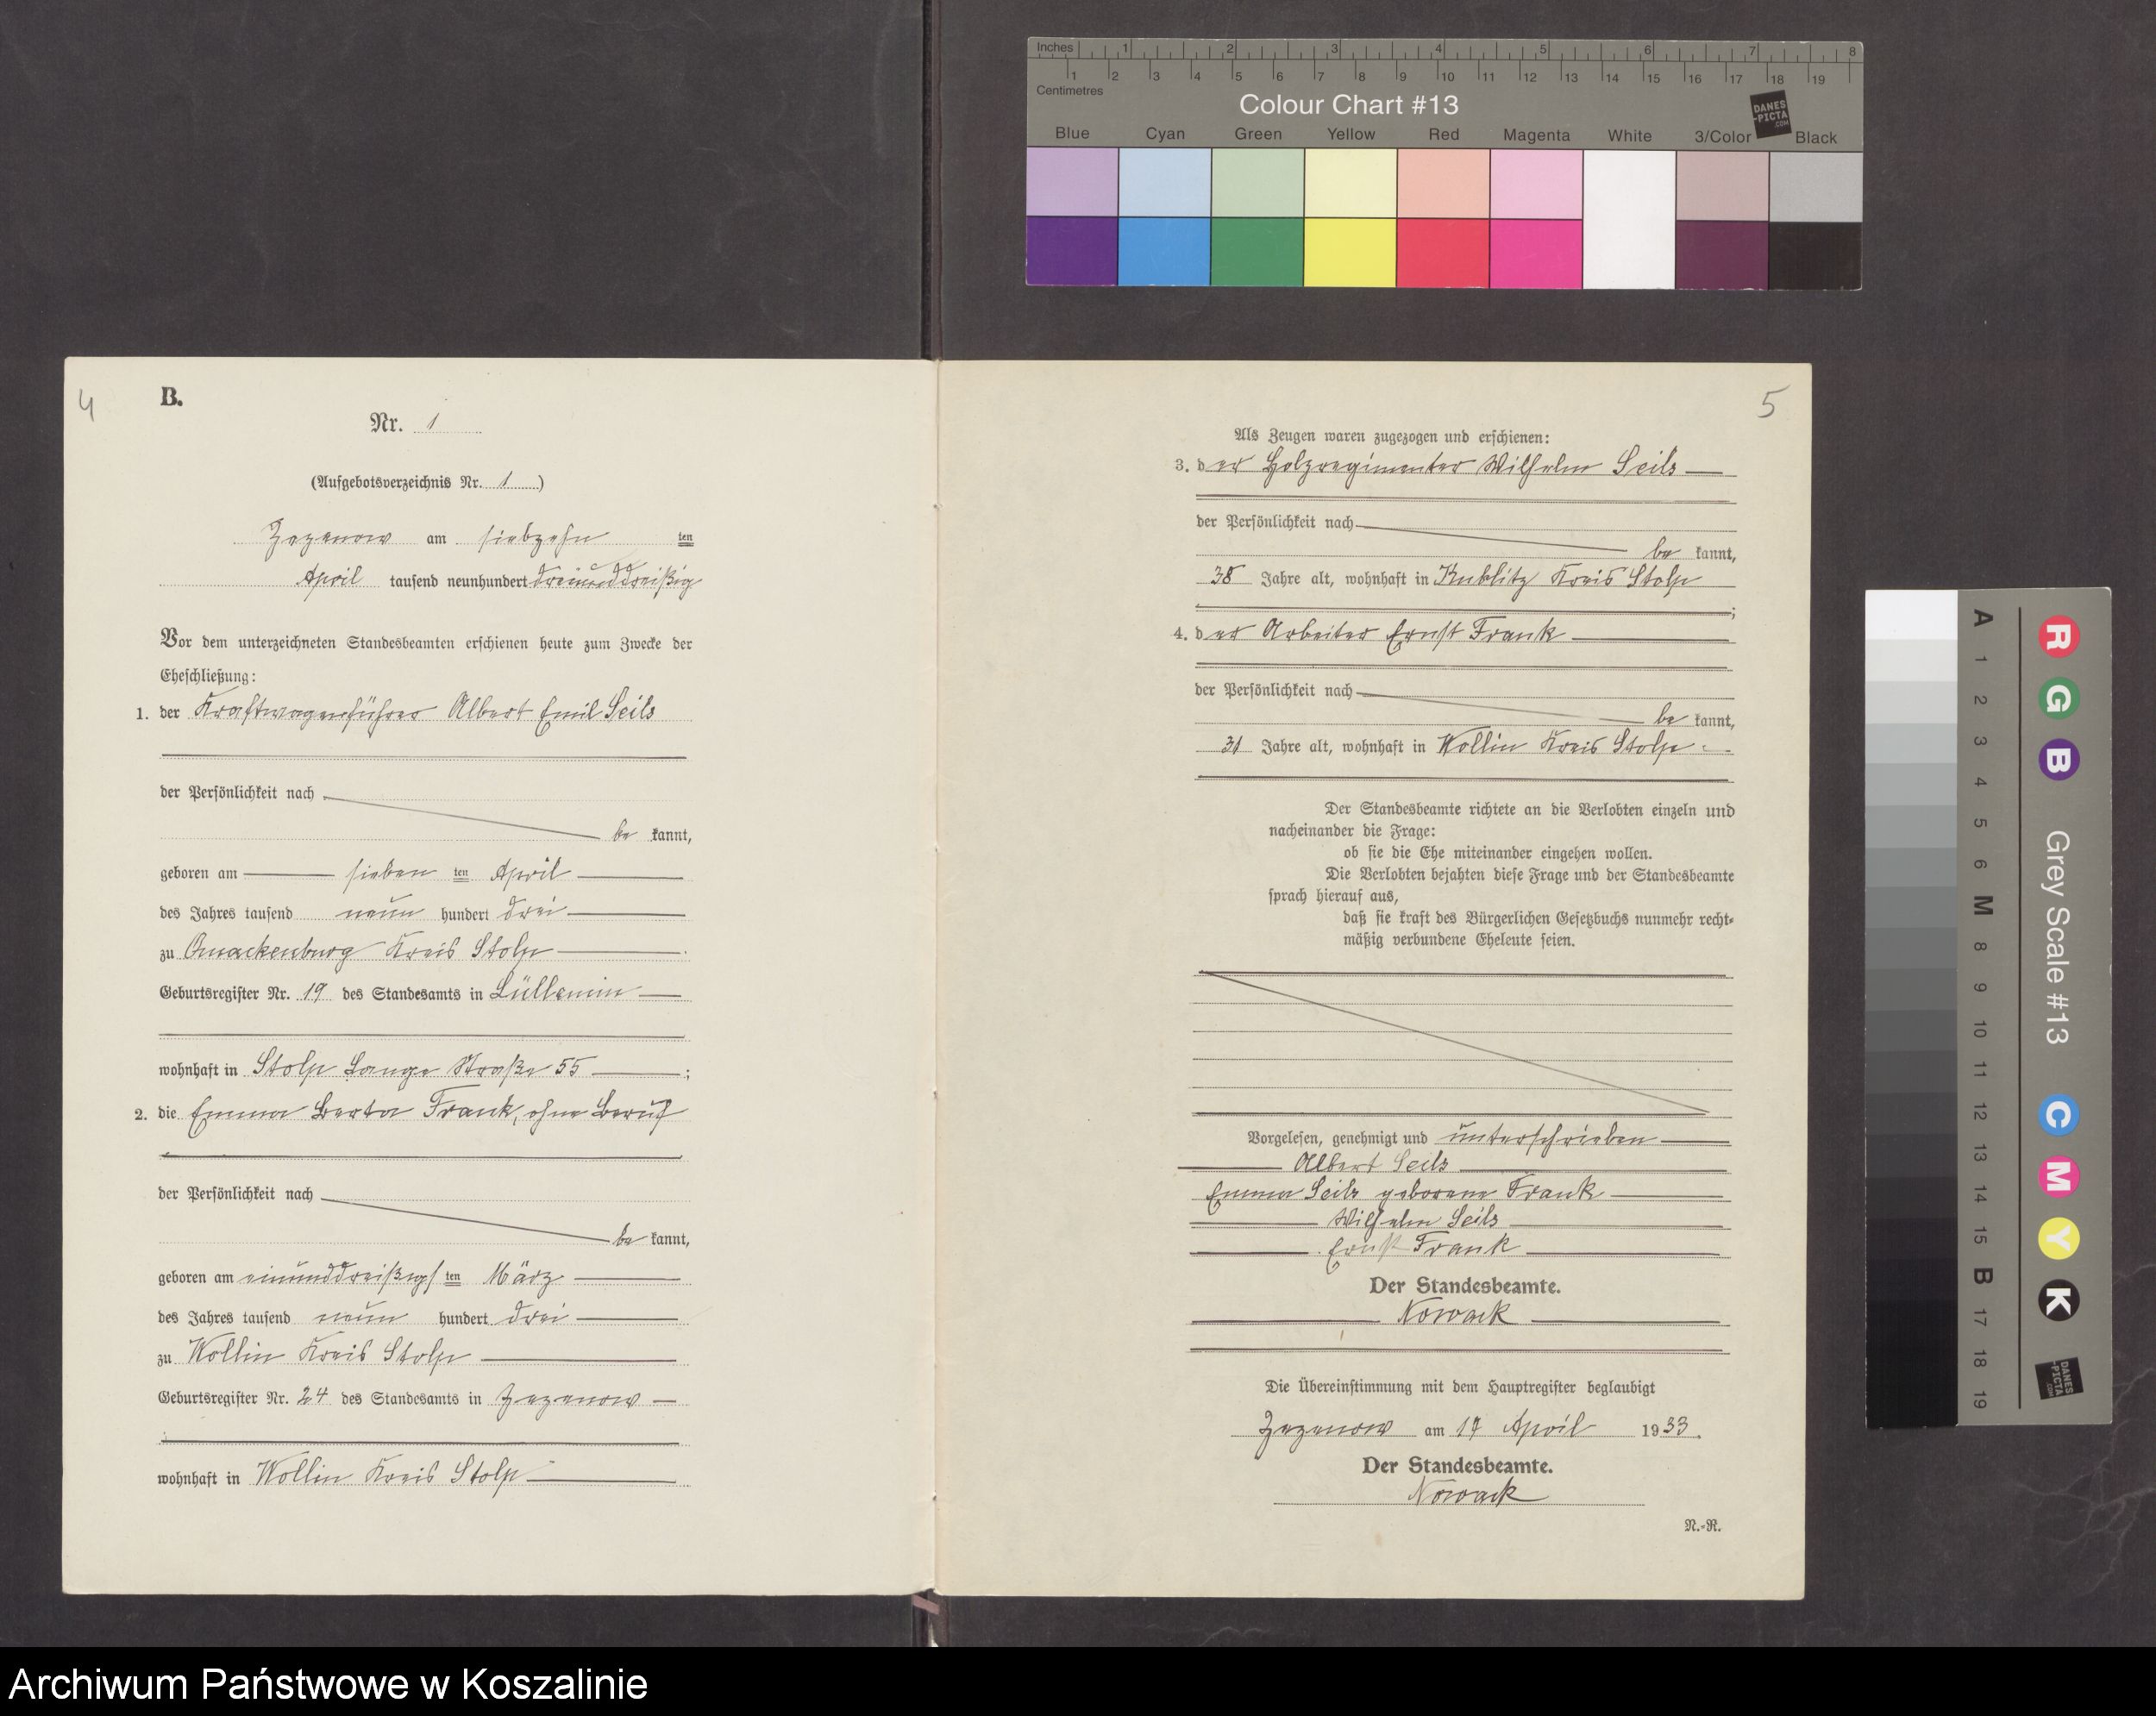 Inches 1 2 3 4 5 6 7 8
1 2 3 4 5 6 7 8 9 10 11 12 13 14 15 16 17 18 19
Centimetres
Colour Chart #13
DANES
-PICTA
.COM
Blue Cyan Green Yellow Red Magenta White 3/Color Black
4
B.
Nr. 1
(Aufgebotsverzeichnis Nr. 1)
Zezenow am siebzehn ten
April tausend neunhundert dreiunddreißig
Vor dem unterzeichneten Standesbeamten erschienen heute zum Zwecke der
Eheschließung:
1. der Kraftwagenführer Albert Emil Seils
der Persönlichkeit nach
be kannt,
geboren am sieben ten April
des Jahres tausend neun hundert drei
zu Quackenburg Kreis Stolp
Geburtsregister Nr. 19 des Standesamts in Lüllemin
wohnhaft in Stolp Lange Straße 55;
2. die Emma Berta Frank, ohne Beruf
der Persönlichkeit nach
be kannt,
geboren am einunddreißigs ten März
des Jahres tausend neun hundert drei
zu Wollin Kreis Stolp
Geburtsregister Nr. 24 des Standesamts in Zezenow
wohnhaft in Wollin Kreis Stolp
5
Als Zeugen waren zugezogen und erschienen:
3. der Holzregimenter Wilhelm Seils
der Persönlichkeit nach
be kannt,
38 Jahre alt, wohnhaft in Kublitz Kreis Stolp
;
4. der Arbeiter Ernst Frank
der Persönlichkeit nach
be kannt,
31 Jahre alt, wohnhaft in Wollin Kreis Stolp
Der Standesbeamte richtete an die Verlobten einzeln und
nacheinander die Frage:
ob sie die Ehe miteinander eingehen wollen.
Die Verlobten bejahten diese Frage und der Standesbeamte
sprach hierauf aus,
daß sie kraft des Bürgerlichen Gesetzbuchs nunmehr recht-
mäßig verbundene Eheleute seien.
Vorgelesen, genehmigt und unterschrieben
Albert Seils
Emma Seils geborene Frank
Wilhelm Seils
Ernst Frank
Der Standesbeamte.
Nowack
Die Übereinstimmung mit dem Hauptregister beglaubigt
Zezenow am 17 April 1933.
Der Standesbeamte.
Nowack
N.-R.
A 1 2 3 4 5 6 M 8 9 10 11 12 13 14 15 B 17 18 19
R G B Grey Scale #13 C M Y K
DANES
-PICTA
.COM
Archiwum Państwowe w Koszalinie